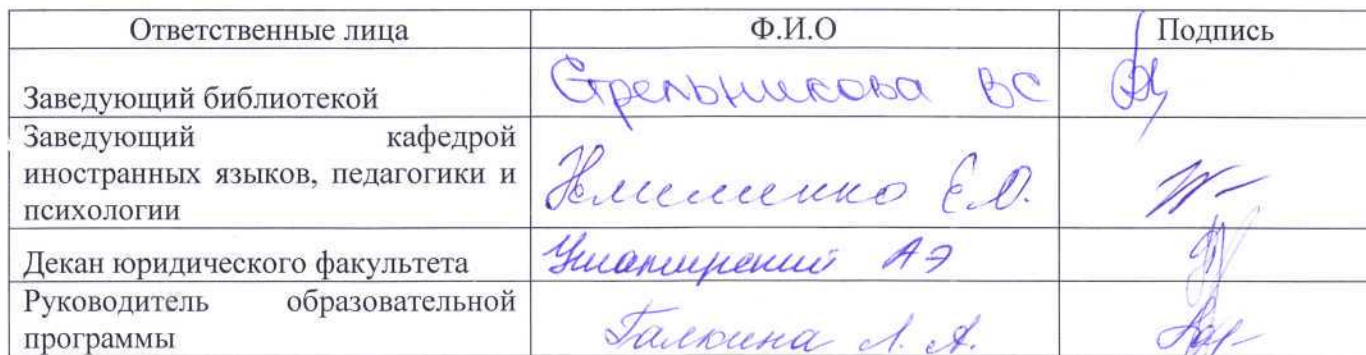 Ответственные лица Ф.И.О Подпись
Заведующий библиотекой Стрельникова ВС
Заведующий кафедрой
иностранных языков, педагогики и
психологии Е.О.
Декан юридического факультета АЭ
Руководитель образовательной
программы Галкина Л. А.